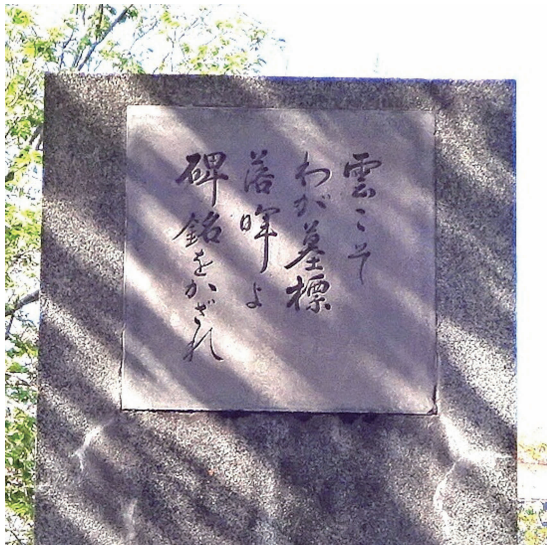 雲こそ
わが墓標
落暉よ
碑銘をかざれ